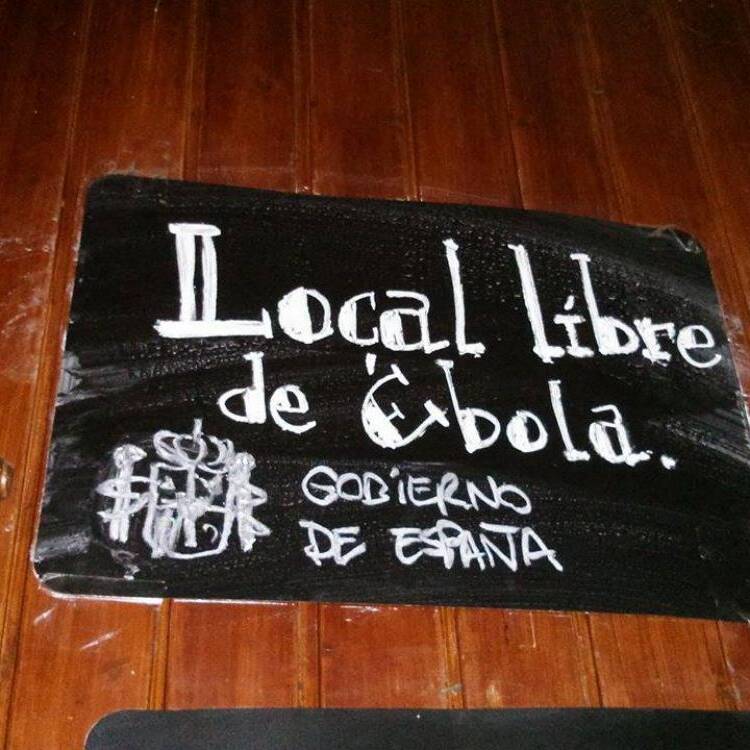 Local libre
de Ébola.
GOBIERNO
DE ESPAÑA